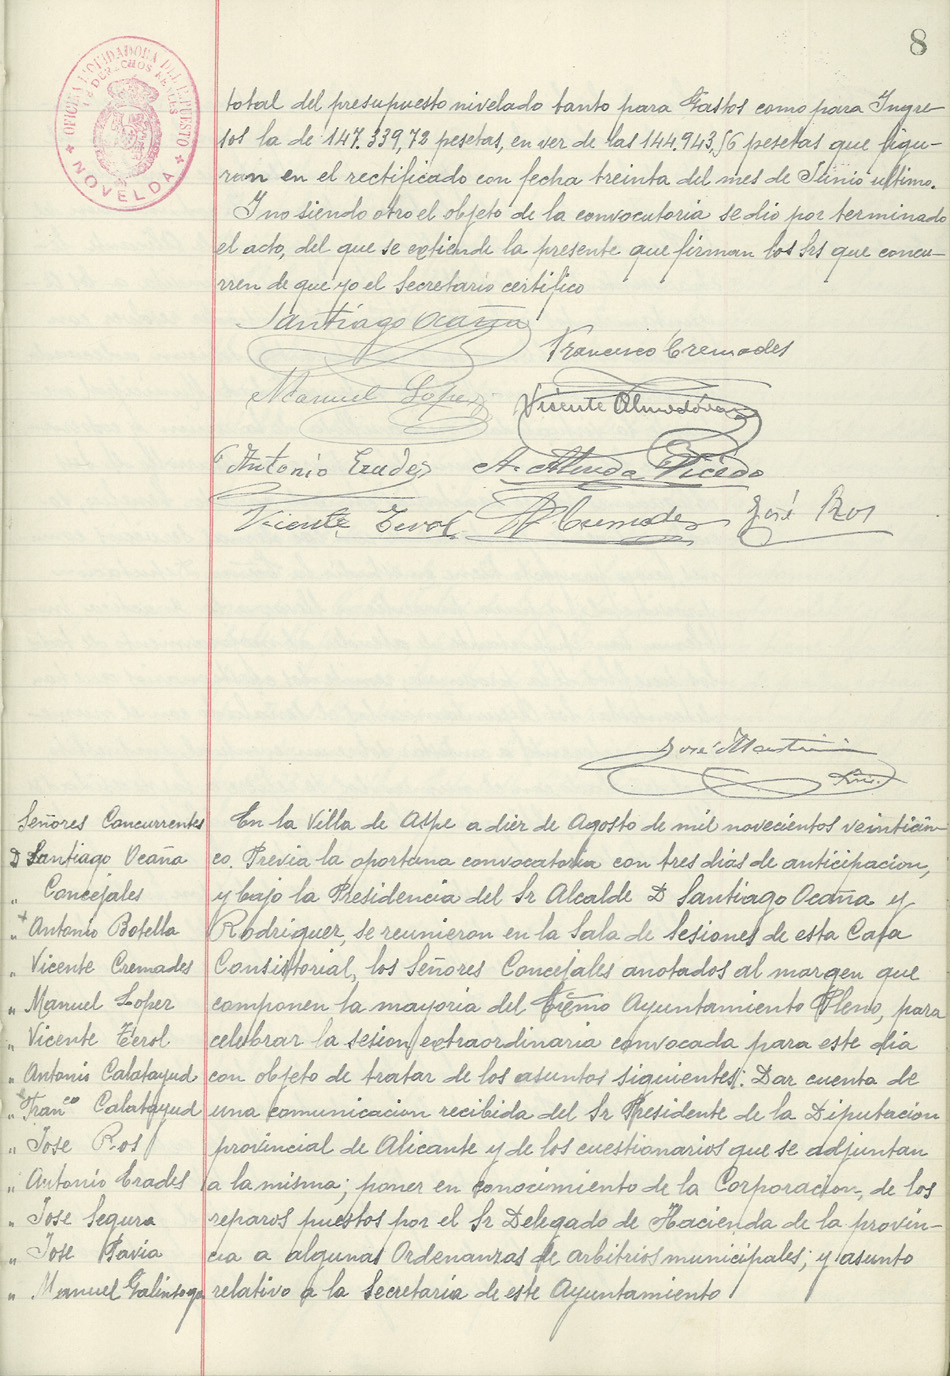 8
OFICINA LIQUIDADORA DEL IMPUESTO
DE DERECHOS REALES
NOVELDA
total del presupuesto nivelado tanto para Gastos como para Ingre-
sos la de 147.339,72 pesetas, en vez de las 144.943,56 pesetas que figu-
ran en el rectificado con fecha treinta del mes de Junio ultimo.
Y no siendo otro el objeto de la convocatoria se dio por terminado
el acto, del que se extiende la presente que firman los Srs que concu-
rren de que yo el Secretario certifico
Santiago Ocaña
Francisco Cremades
Manuel Lopez
Vicente Almodóvar
Antonio Erades
A. Vicedo
Vicente Terol
Cremades
José Ros
José Martinez
Srio.
Señores Concurrentes
D Santiago Ocaña
Concejales
" Antonio Botella
" Vicente Cremades
" Manuel Lopez
" Vicente Terol
" Antonio Calatayud
" Franco Calatayud
" Jose Ros
" Antonio Erades
" Jose Segura
" Jose Pavia
" Manuel Galintoga
En la Villa de Aspe a diez de Agosto de mil novecientos veinticin-
co. Previa la oportuna convocatoria con tres dias de anticipacion,
y bajo la Presidencia del Sr Alcalde D Santiago Ocaña y
Rodriguez, se reunieron en la Sala de Sesiones de esta Casa
Consistorial, los Señores Concejales anotados al margen que
componen la mayoria del Ayuntamiento Pleno, para
celebrar la sesion extraordinaria convocada para este dia
con objeto de tratar de los asuntos siguientes: Dar cuenta de
una comunicacion recibida del Sr Presidente de la Diputacion
provincial de Alicante y de los cuestionarios que se adjuntan
a la misma; poner en conocimiento de la Corporacion, de los
reparos puestos por el Sr Delegado de Hacienda de la provin-
cia a algunas Ordenanzas de arbitrios municipales; y asunto
relativo a la Secretaria de este Ayuntamiento